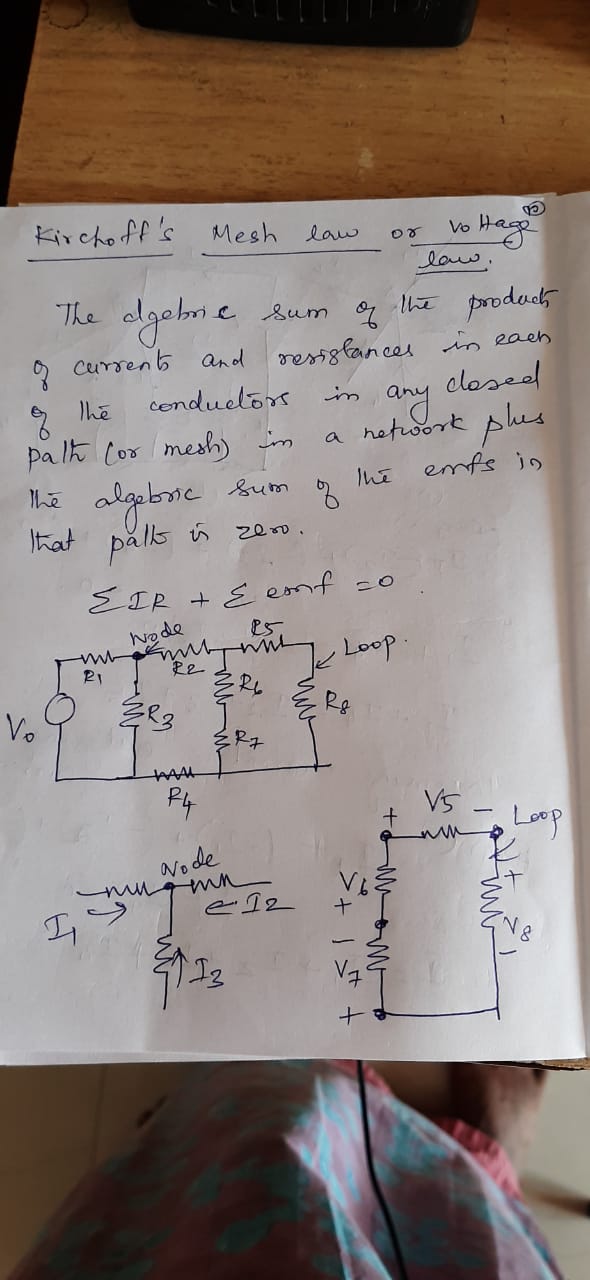 Kirchoff's Mesh law or Voltage
law.
The algebric sum of the product
of currents and resistances in each
of the conductors in any closed
path (or mesh) in a network plus
the algebric sum of the emfs in
that path is zero.
Σ IR + Σ emf = 0.
Node
R5
Loop.
R1
R2
R6
R3
R8
V0
R7
R4
+ V5 -
Loop
Node
V6
+
I1
I2
+
V8
-
-
I3
V7
+